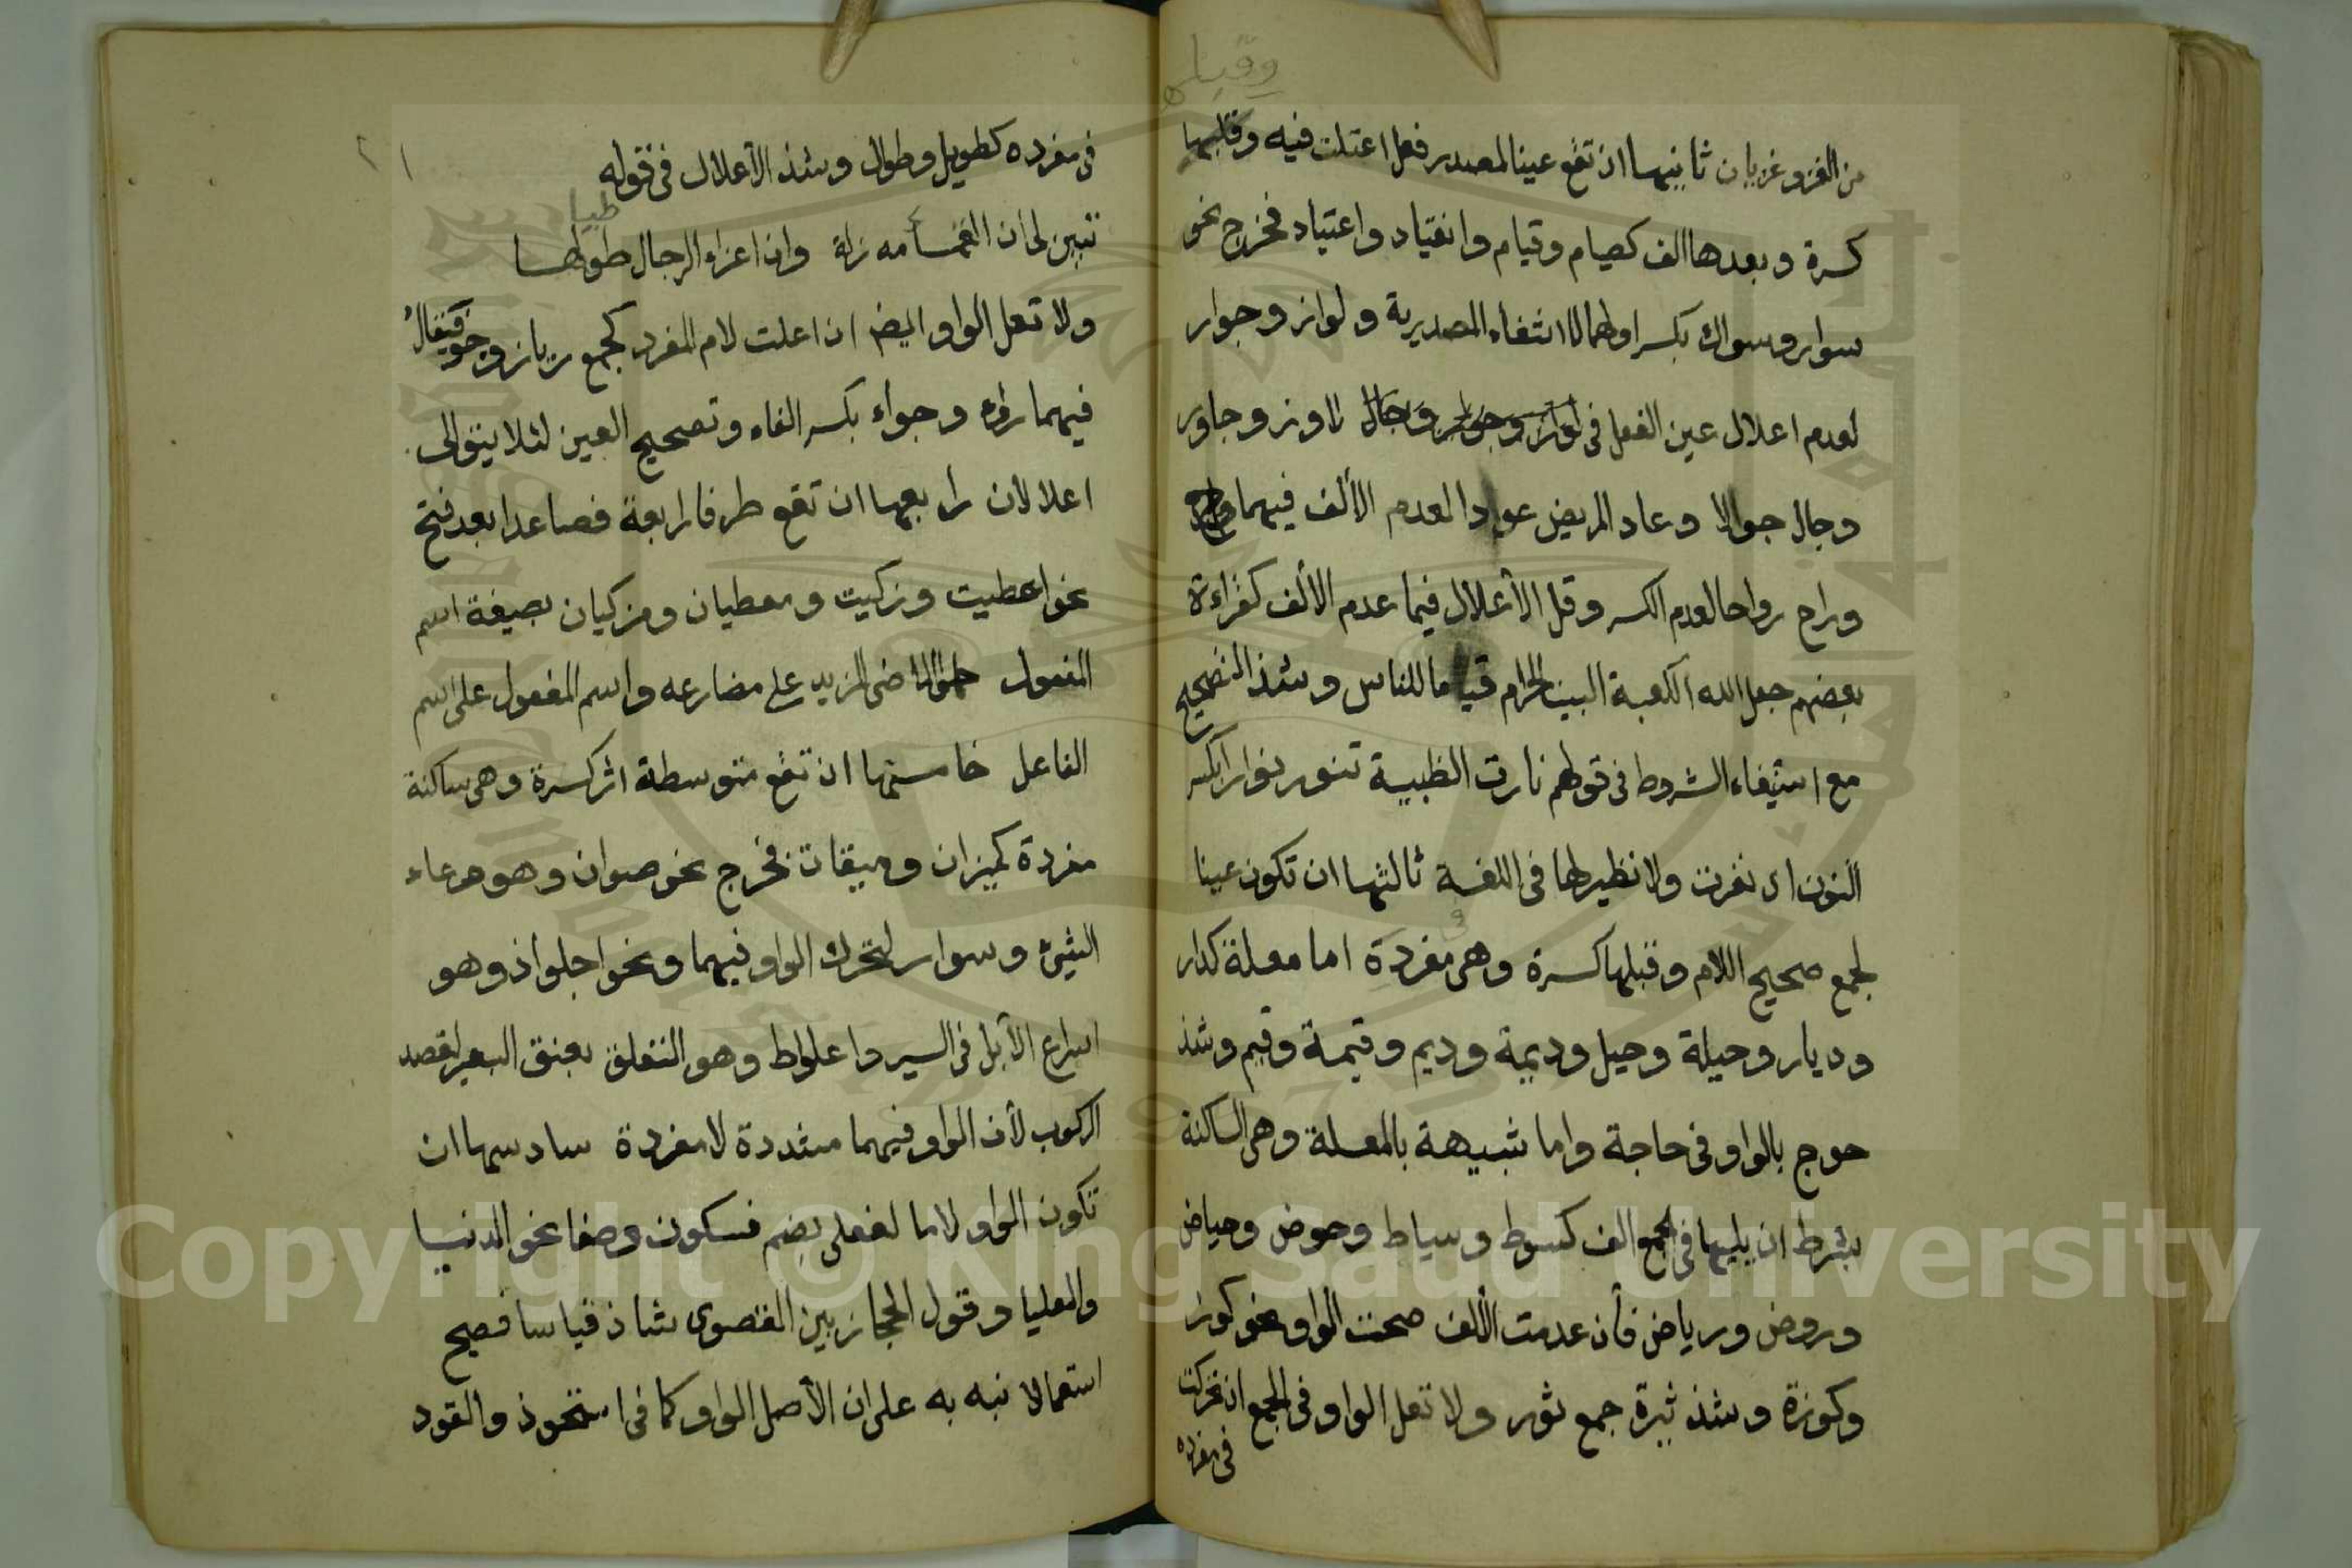 وقبلها
من الغزو غزيان ثانيها ان تقع عينا لمصدر فعل اعتلت فيه وقبلها
كسرة وبعدها الف كصيام وقيام وانقياد واعتياد فخرج نحو
سوار وسواك بكسر اولهما لانتفاء المصدرية ولواز وجوار
لعدم اعلال عين الفعل في لواز وجوار وجال لاوز وجاور
وجال جوالا وعاد المريض عوادا لعدم الألف فيهما
وراح رواحا لعدم الكسر وقل الأعلال فيما عدم الألف كقراءة
بعضهم جعل الله الكعبة البيت الحرام قياما للناس وشذ التصحيح
مع استيفاء الشروط في قولهم نارت الظبية تنور نوارا بكسر
النون اى نفرت ولا نظير لها في اللغة ثالثها ان تكون عينا
لجمع صحيح اللام وقبلها كسرة وهى مفردة اما معلة كدار
وديار وحيلة وحيل وديمة وديم وقيمة وقيم وشذ
حوج بالواو في حاجة واما شبيهة بالمعلة وهى الساكنة
بشرط ان يليها في الجمع الف كسوط وسياط وحوض وحياض
وروض ورياض فأن عدمت الألف صحت الواو نحو كوز
وكوزة وشذ ثيرة جمع ثور ولا تعل الواو في الجمع ان تحركت
في مفرده
٢١
في مفرده كطويل وطوال وشذ الأعلال في قوله
طيا
تبين لى ان القمأمه زلة وان اعزاء الرجال طولها
ولا تعل الواو ايض ان اعلت لام المفرد كجمع ريان وجو فيقال
فيهما رواء وجواء بكسر الفاء وتصحيح العين لئلا يتوالى
اعلالان رابعها ان تقع طرفا رابعة فصاعدا بعد فتح
نحو اعطيت وزكيت ومعطيان ومزكيان بصيغة اسم
المفعول حملوا الماضى المزيد على مضارعه واسم المفعول على اسم
الفاعل خامستها ان تقع متوسطة اثر كسرة وهى ساكنة
مفردة كميزان وميقات فخرج نحو صوان وهو وعاء
الشيئ وسوار لتحرك الواو فيهما ونحو اجلواذ وهو
اسراع الأبل في السير واعلواط وهو التعلق بعنق البعير لقصد
الركوب لأن الواو فيهما مشددة لا مفردة سادسها ان
تكون الواو لاما لفعلى بضم فسكون وصفا نحو الدنيا
والعليا وقول الحجازيين القصوى شاذ قياسا فصيح
استعمالا نبه به على ان الأصل الواو كما في استحوذ والقود
Copyright © King Saud University